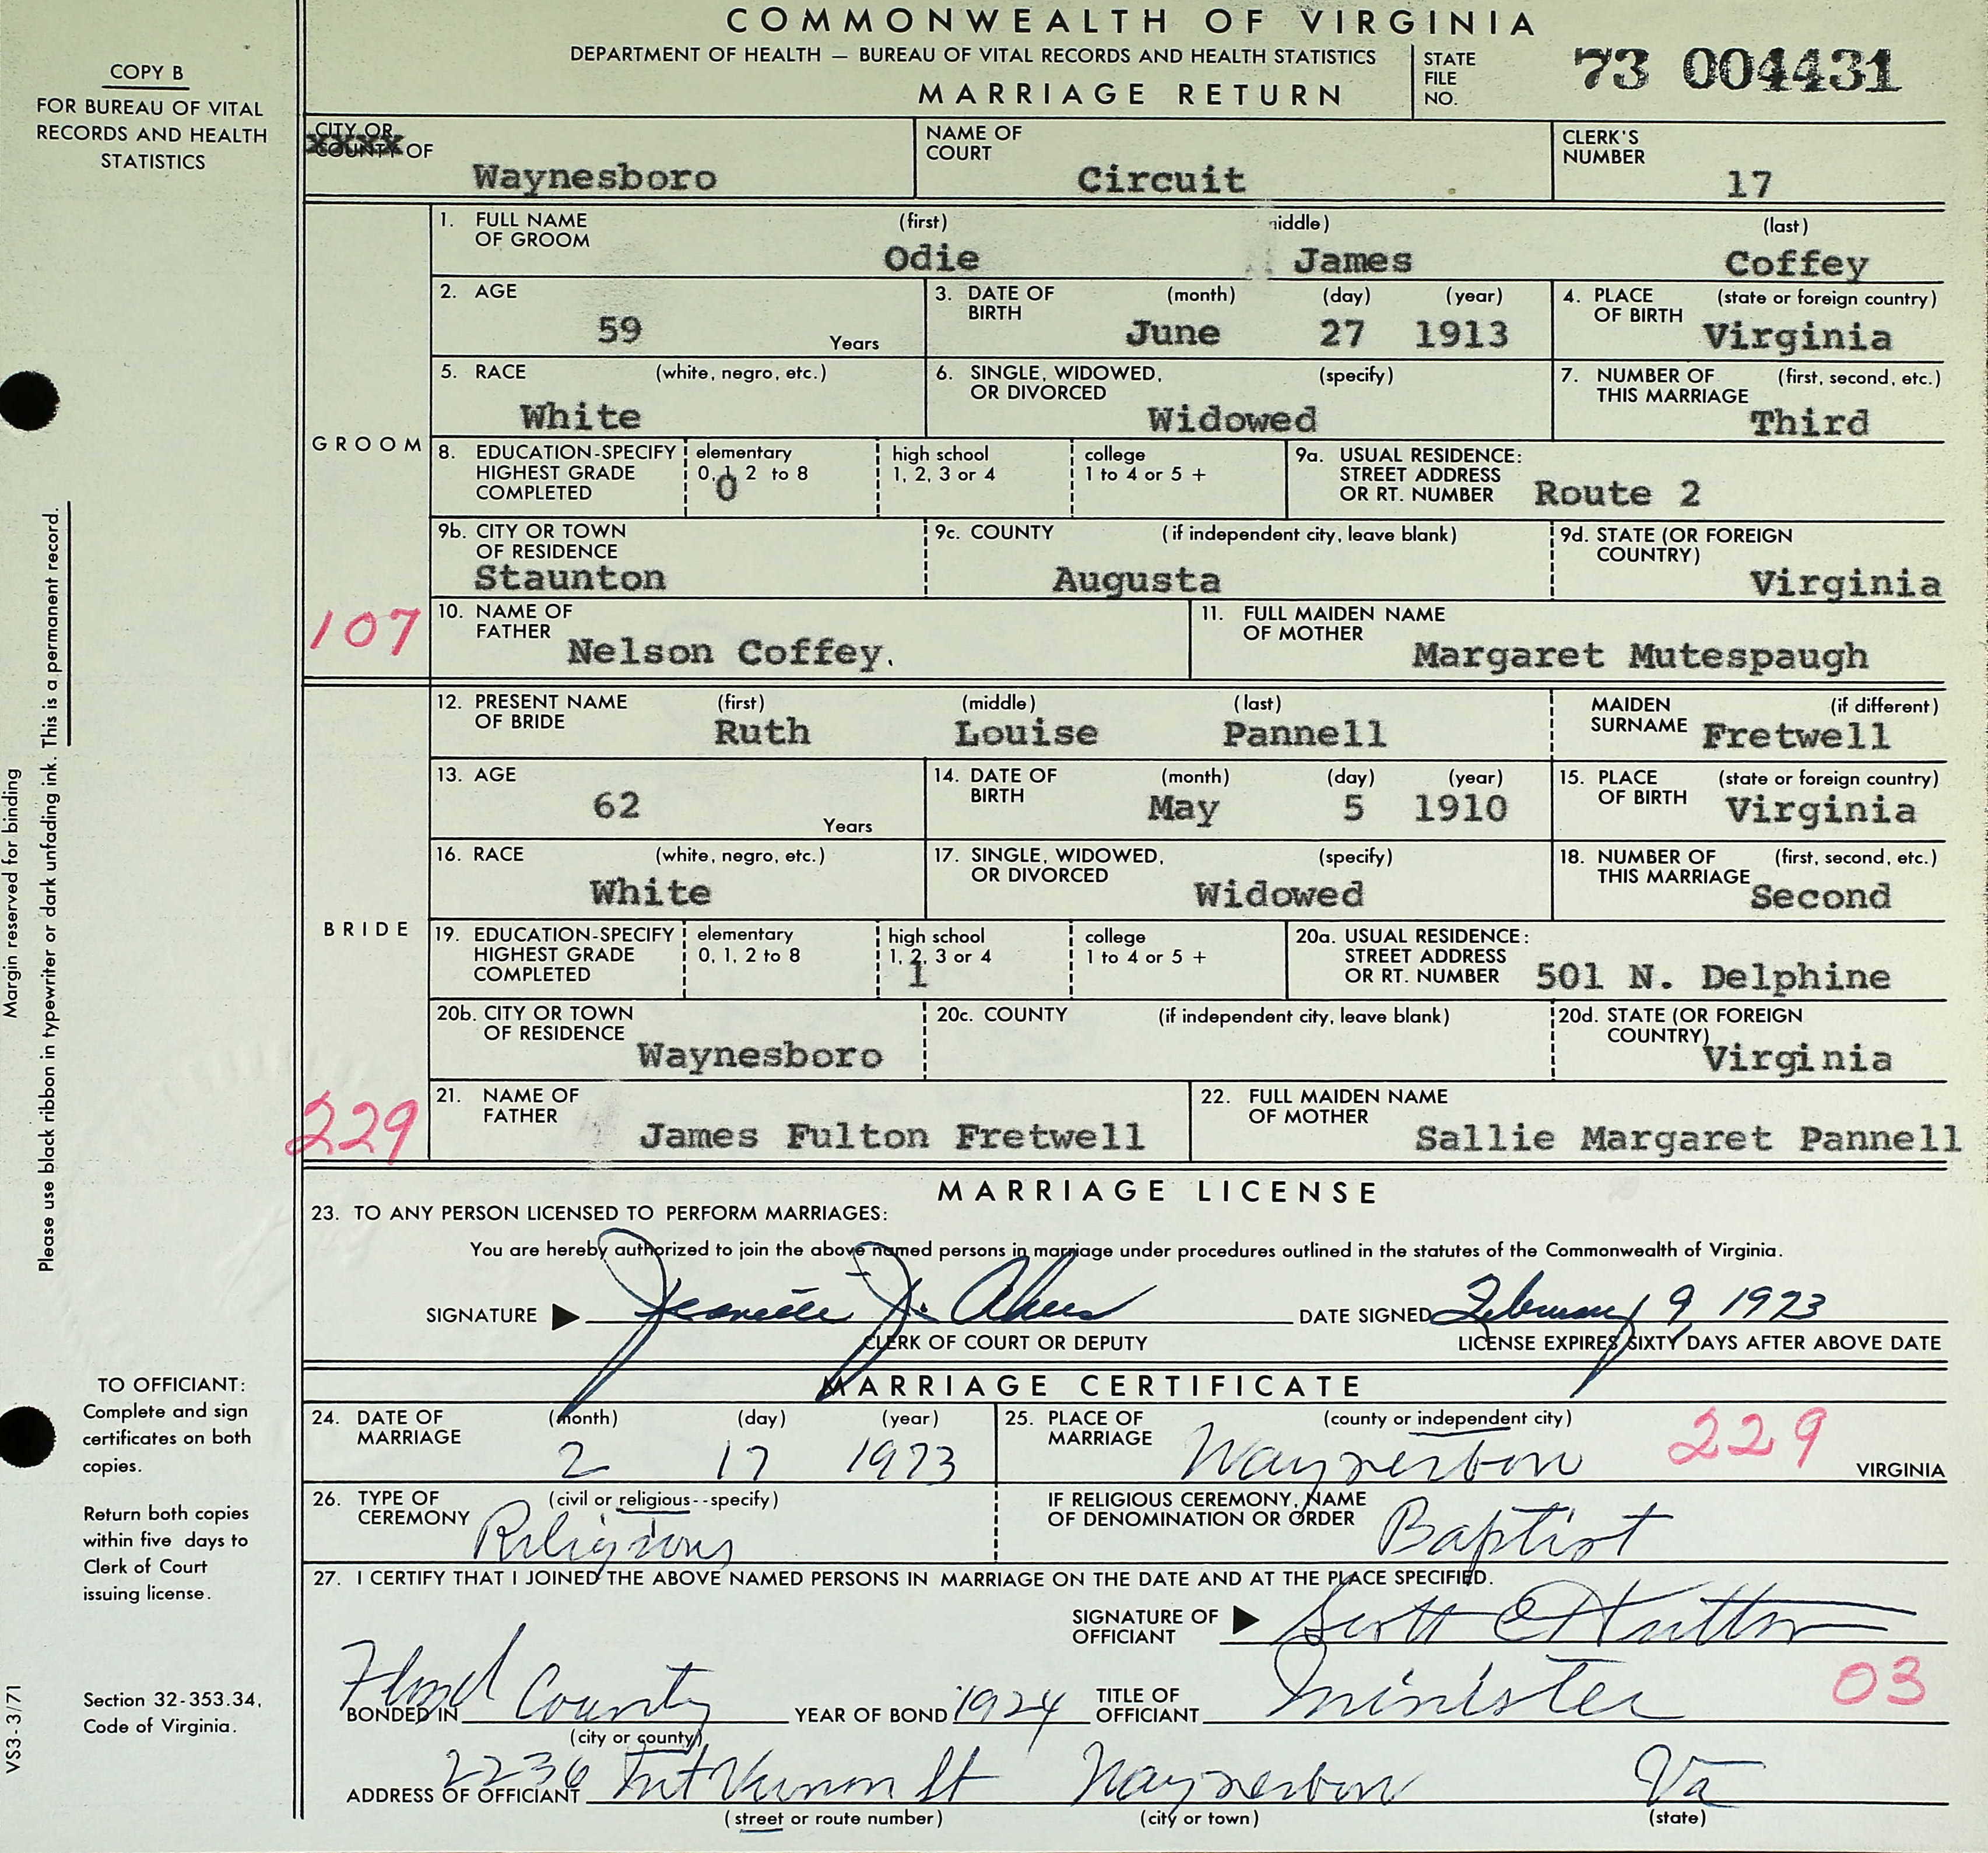 COMMONWEALTH OF VIRGINIA
DEPARTMENT OF HEALTH — BUREAU OF VITAL RECORDS AND HEALTH STATISTICS
MARRIAGE RETURN
STATE FILE NO. 73 004431
COPY B
FOR BUREAU OF VITAL
RECORDS AND HEALTH
STATISTICS
CITY OR COUNTY OF Waynesboro
NAME OF COURT Circuit
CLERK'S NUMBER 17
GROOM
1. FULL NAME OF GROOM (first) Odie (middle) James (last) Coffey
2. AGE 59 Years
3. DATE OF BIRTH (month) June (day) 27 (year) 1913
4. PLACE OF BIRTH (state or foreign country) Virginia
5. RACE (white, negro, etc.) White
6. SINGLE, WIDOWED, OR DIVORCED (specify) Widowed
7. NUMBER OF THIS MARRIAGE (first, second, etc.) Third
8. EDUCATION-SPECIFY HIGHEST GRADE COMPLETED elementary 0, 1, 2 to 8 0 high school 1, 2, 3 or 4 college 1 to 4 or 5 +
9a. USUAL RESIDENCE: STREET ADDRESS OR RT. NUMBER Route 2
9b. CITY OR TOWN OF RESIDENCE Staunton
9c. COUNTY (if independent city, leave blank) Augusta
9d. STATE (OR FOREIGN COUNTRY) Virginia
107
10. NAME OF FATHER Nelson Coffey.
11. FULL MAIDEN NAME OF MOTHER Margaret Mutespaugh
BRIDE
12. PRESENT NAME OF BRIDE (first) Ruth (middle) Louise (last) Pannell
MAIDEN SURNAME (if different) Fretwell
13. AGE 62 Years
14. DATE OF BIRTH (month) May (day) 5 (year) 1910
15. PLACE OF BIRTH (state or foreign country) Virginia
16. RACE (white, negro, etc.) White
17. SINGLE, WIDOWED, OR DIVORCED (specify) Widowed
18. NUMBER OF THIS MARRIAGE (first, second, etc.) Second
19. EDUCATION-SPECIFY HIGHEST GRADE COMPLETED elementary 0, 1, 2 to 8 high school 1, 2, 3 or 4 1 college 1 to 4 or 5 +
20a. USUAL RESIDENCE: STREET ADDRESS OR RT. NUMBER 501 N. Delphine
20b. CITY OR TOWN OF RESIDENCE Waynesboro
20c. COUNTY (if independent city, leave blank)
20d. STATE (OR FOREIGN COUNTRY) Virginia
229
21. NAME OF FATHER James Fulton Fretwell
22. FULL MAIDEN NAME OF MOTHER Sallie Margaret Pannell
MARRIAGE LICENSE
23. TO ANY PERSON LICENSED TO PERFORM MARRIAGES:
You are hereby authorized to join the above named persons in marriage under procedures outlined in the statutes of the Commonwealth of Virginia.
SIGNATURE J. DATE SIGNED February 9, 1973
CLERK OF COURT OR DEPUTY LICENSE EXPIRES SIXTY DAYS AFTER ABOVE DATE
MARRIAGE CERTIFICATE
24. DATE OF MARRIAGE (month) 2 (day) 17 (year) 1973
25. PLACE OF MARRIAGE (county or independent city) Waynesboro 229 VIRGINIA
26. TYPE OF CEREMONY (civil or religious--specify) Religious
IF RELIGIOUS CEREMONY, NAME OF DENOMINATION OR ORDER Baptist
27. I CERTIFY THAT I JOINED THE ABOVE NAMED PERSONS IN MARRIAGE ON THE DATE AND AT THE PLACE SPECIFIED.
SIGNATURE OF OFFICIANT Scott C Hutton
BONDED IN Floyd County (city or county) YEAR OF BOND 1924 TITLE OF OFFICIANT Minister 03
ADDRESS OF OFFICIANT 2236 Mt Vernon St Waynesboro Va
(street or route number) (city or town) (state)
Margin reserved for binding
Please use black ribbon in typewriter or dark unfading ink. This is a permanent record.
TO OFFICIANT:
Complete and sign
certificates on both
copies.
Return both copies
within five days to
Clerk of Court
issuing license.
Section 32-353.34,
Code of Virginia.
VS3-3/71